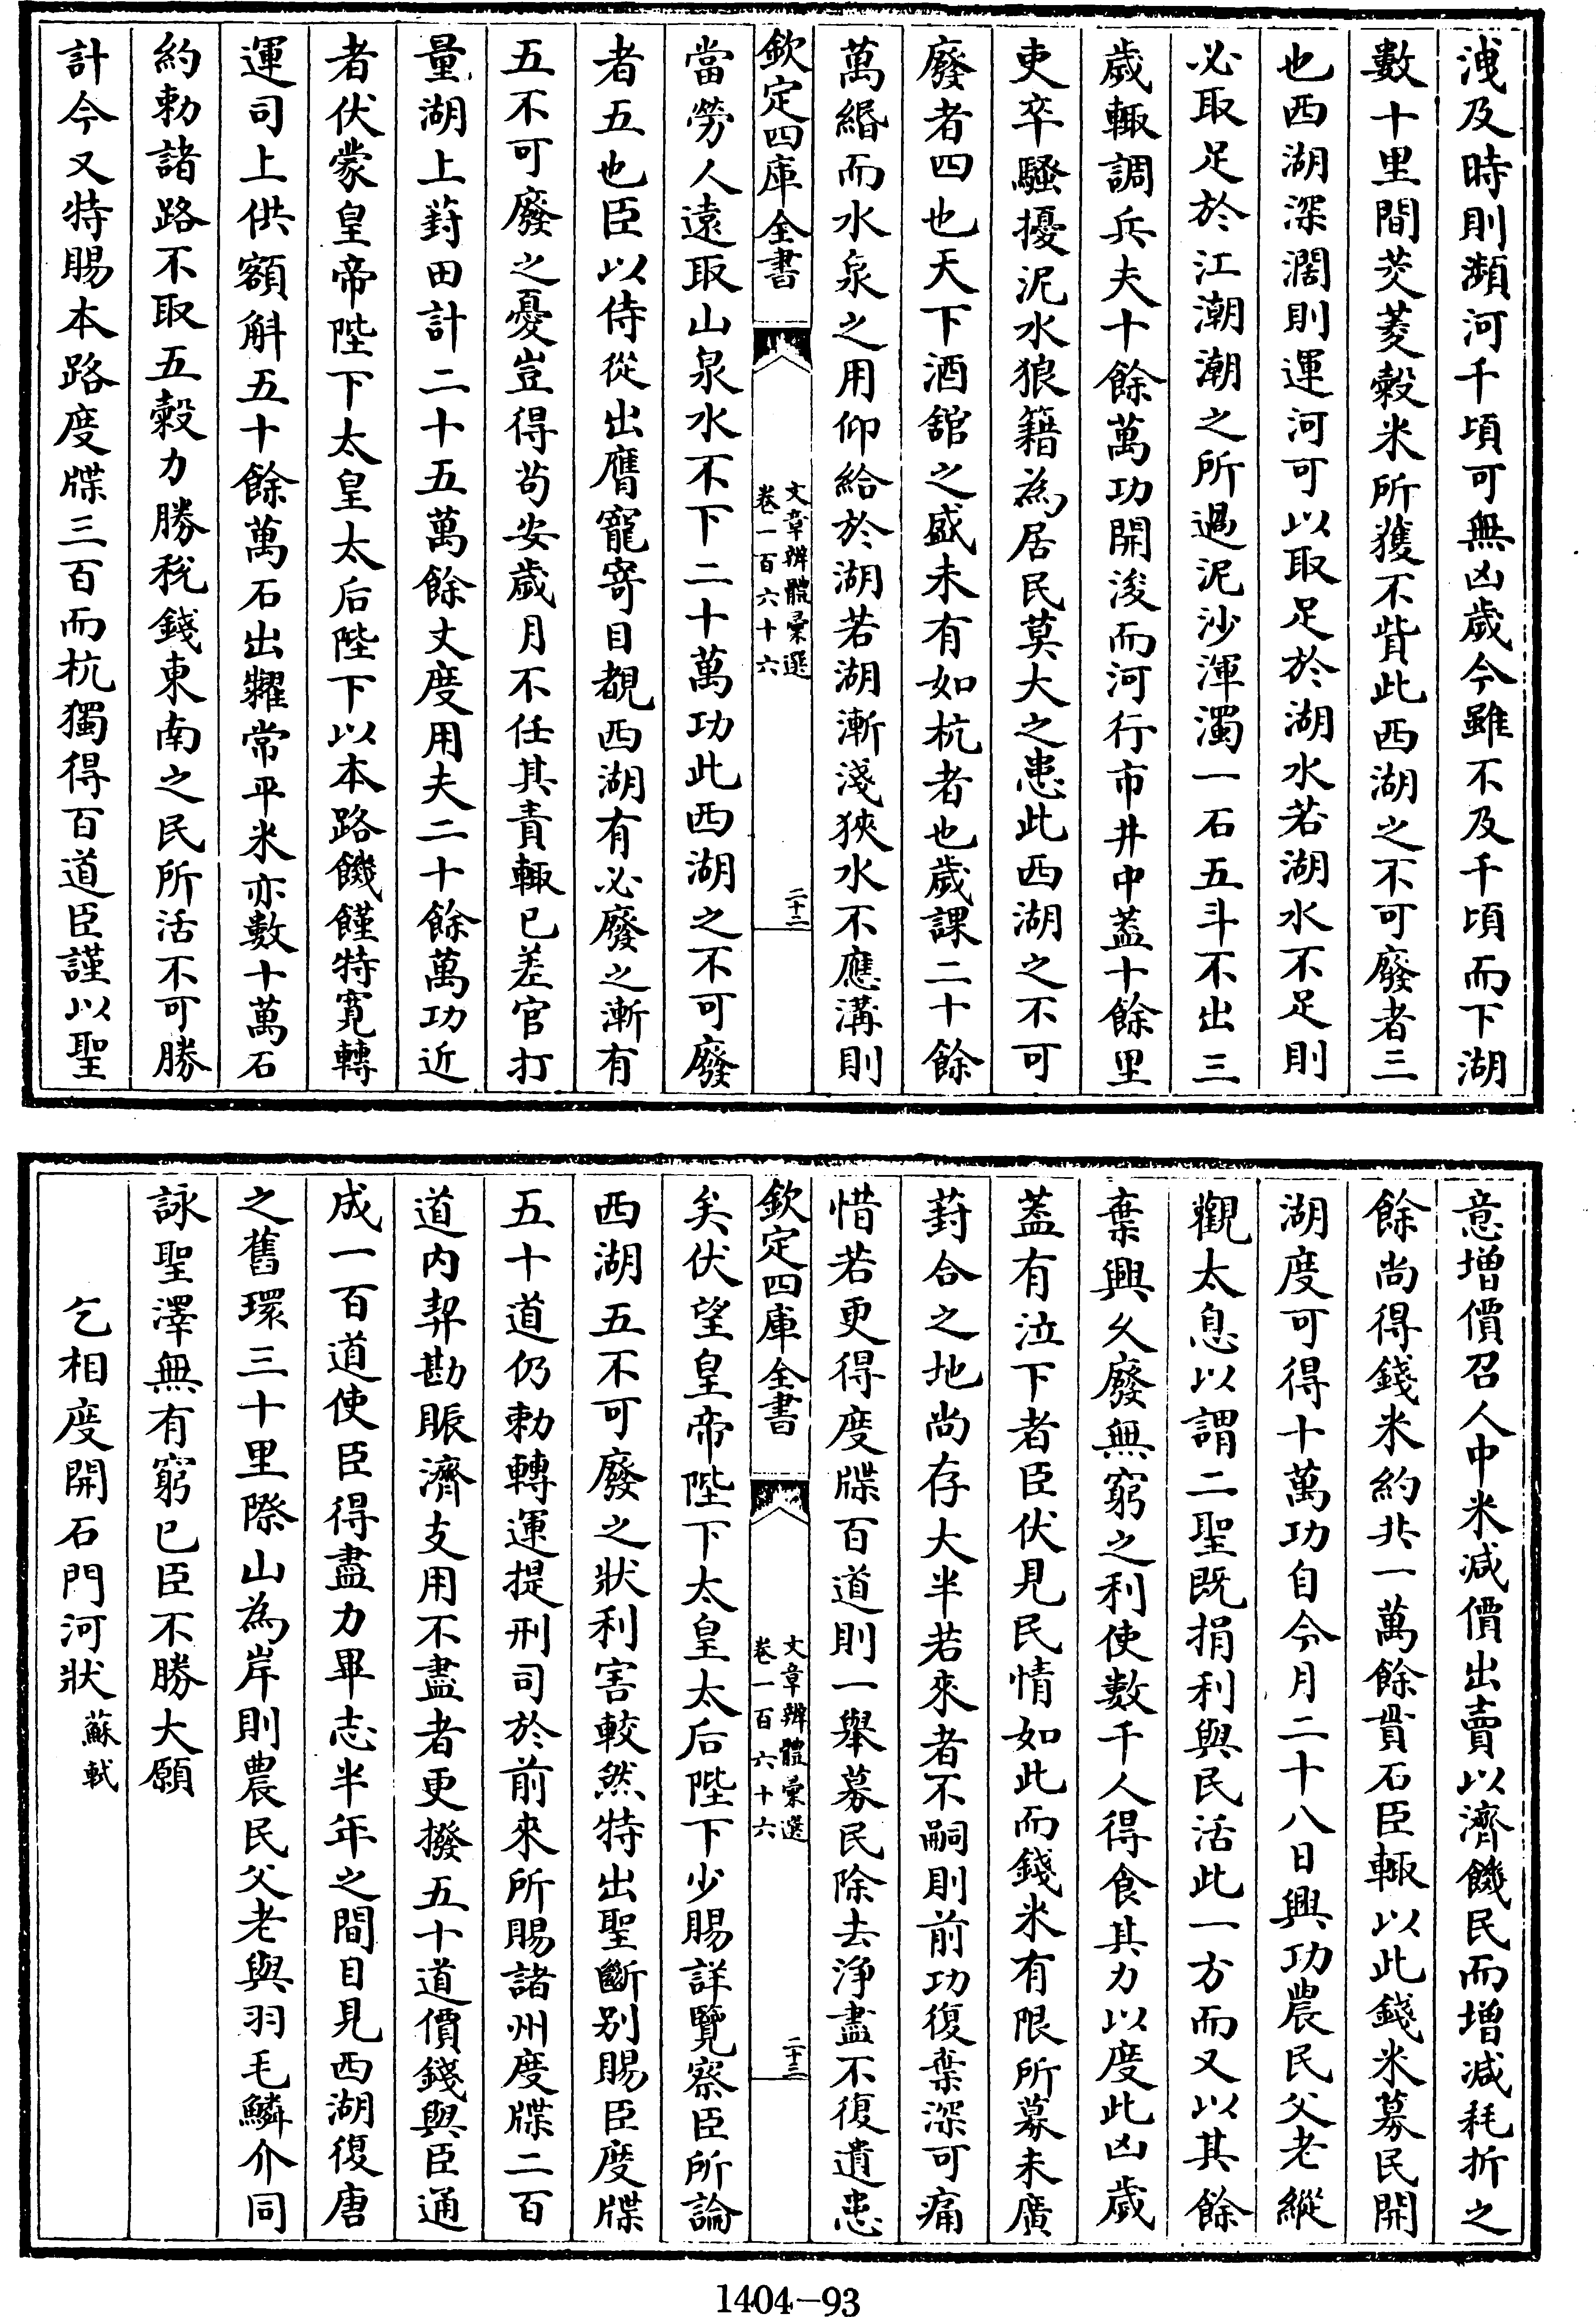 洩及時則瀕河千頃可無凶歲今雖不及千頃而下湖
數十里間茭菱穀米所獲不貲此西湖之不可廢者三
也西湖深濶則運河可以取足於湖水若湖水不足則
必取足於江潮潮之所過泥沙渾濁一石五斗不出三
歲輙調兵夫十餘萬功開浚而河行市井中葢十餘里
吏卒騷擾泥水狼籍為居民莫大之患此西湖之不可
廢者四也天下酒舘之盛未有如杭者也歲課二十餘
萬緡而水泉之用仰給於湖若湖漸淺狹水不應溝則
欽定四庫全書
文章辨體彙選
卷一百六十六
二十二
當勞人遠取山泉水不下二十萬功此西湖之不可廢
者五也臣以侍從出膺寵寄目覩西湖有必廢之漸有
五不可廢之憂豈得苟安歲月不任其責輙已差官打
量湖上葑田計二十五萬餘丈度用夫二十餘萬功近
者伏蒙皇帝陛下太皇太后陛下以本路饑饉特寛轉
運司上供額斛五十餘萬石出糶常平米亦數十萬石
約勅諸路不取五穀力勝稅錢東南之民所活不可勝
計今又特賜本路度牒三百而杭獨得百道臣謹以聖
意增價召人中米減價出賣以濟饑民而增減耗折之
餘尚得錢米約共一萬餘貫石臣輙以此錢米募民開
湖度可得十萬功自今月二十八日興功農民父老縱
觀太息以謂二聖既捐利與民活此一方而又以其餘
棄興久廢無窮之利使數千人得食其力以度此凶歲
葢有泣下者臣伏見民情如此而錢米有限所募未廣
葑合之地尚存大半若來者不嗣則前功復棄深可痛
惜若更得度牒百道則一舉募民除去淨盡不復遺患
欽定四庫全書
文章辨體彙選
卷一百六十六
二十三
矣伏望皇帝陛下太皇太后陛下少賜詳覽察臣所論
西湖五不可廢之狀利害較然特出聖斷别賜臣度牒
五十道仍勅轉運提刑司於前來所賜諸州度牒二百
道内契勘賑濟支用不盡者更撥五十道價錢與臣通
成一百道使臣得盡力畢志半年之間目見西湖復唐
之舊環三十里際山為岸則農民父老與羽毛鱗介同
詠聖澤無有窮已臣不勝大願
乞相度開石門河狀 蘇軾
1404-93